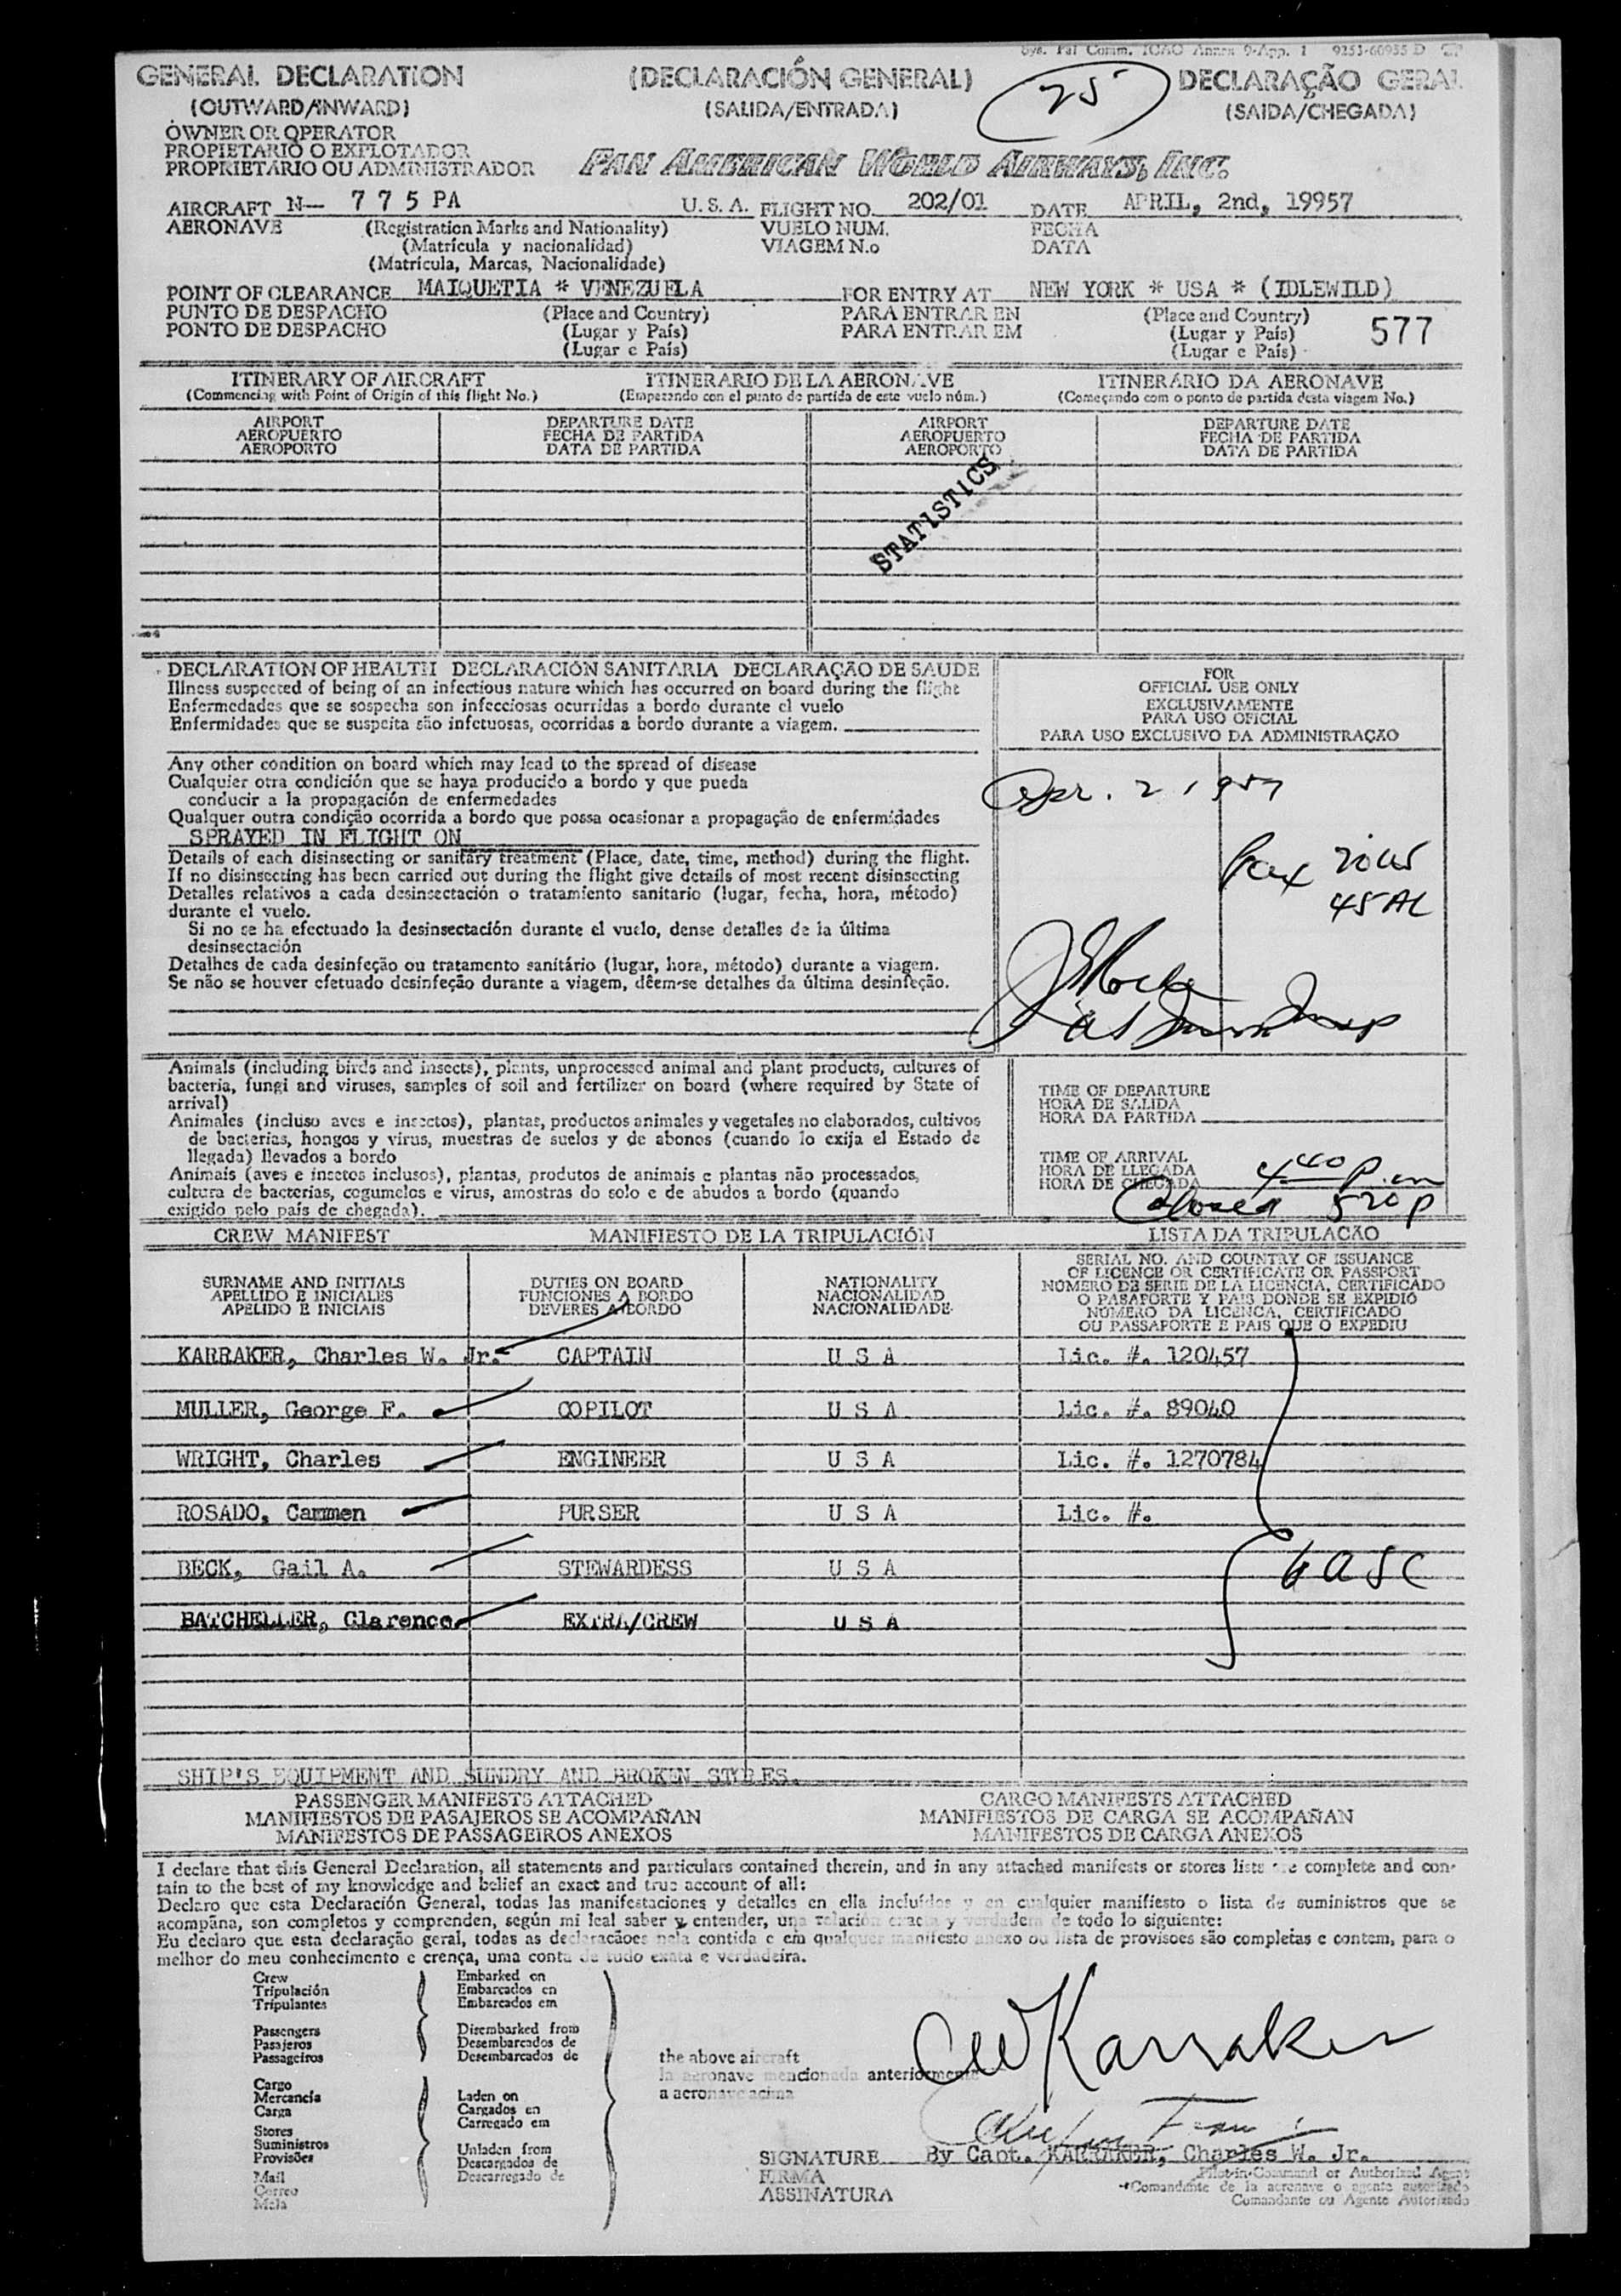 Sys. Pal Comm. ICAO Annex 9-App. 1 9253-60955 D
GENERAL DECLARATION (DECLARACIÓN GENERAL) DECLARAÇÃO GERAL
25
(OUTWARD/INWARD) (SALIDA/ENTRADA) (SAIDA/CHEGADA)
OWNER OR OPERATOR
PROPIETARIO O EXPLOTADOR
PROPRIETARIO OU ADMINISTRADOR PAN AMERICAN WORLD AIRWAYS, INC.
AIRCRAFT N— 7 7 5 PA U. S. A. FLIGHT NO. 202/01 DATE APRIL, 2nd, 19957
AERONAVE (Registration Marks and Nationality) VUELO NUM. FECHA
(Matrícula y nacionalidad) VIAGEM N.o DATA
(Matrícula, Marcas, Nacionalidade)
POINT OF CLEARANCE MAIQUETIA * VENEZUELA FOR ENTRY AT NEW YORK * USA * (IDLEWILD)
PUNTO DE DESPACHO (Place and Country) PARA ENTRAR EN (Place and Country)
PONTO DE DESPACHO (Lugar y País) PARA ENTRAR EM (Lugar y País) 577
(Lugar e País) (Lugar e País)
ITINERARY OF AIRCRAFT ITINERARIO DE LA AERONAVE ITINERÁRIO DA AERONAVE
(Commencing with Point of Origin of this flight No.) (Empezando con el punto de partida de este vuelo núm.) (Começando com o ponto de partida desta viagem No.)
AIRPORT DEPARTURE DATE AIRPORT DEPARTURE DATE
AEROPUERTO FECHA DE PARTIDA AEROPUERTO FECHA DE PARTIDA
AEROPORTO DATA DE PARTIDA AEROPORTO DATA DE PARTIDA
STATISTICS
DECLARATION OF HEALTH DECLARACIÓN SANITARIA DECLARAÇÃO DE SAUDE
Illness suspected of being of an infectious nature which has occurred on board during the flight
Enfermedades que se sospecha son infecciosas ocurridas a bordo durante el vuelo
Enfermidades que se suspeita são infetuosas, ocorridas a bordo durante a viagem.
FOR
OFFICIAL USE ONLY
EXCLUSIVAMENTE
PARA USO OFICIAL
PARA USO EXCLUSIVO DA ADMINISTRAÇÃO
Any other condition on board which may lead to the spread of disease
Cualquier otra condición que se haya producido a bordo y que pueda
conducir a la propagación de enfermedades
Qualquer outra condição ocorrida a bordo que possa ocasionar a propagação de enfermidades
SPRAYED IN FLIGHT ON
Details of each disinsecting or sanitary treatment (Place, date, time, method) during the flight.
If no disinsecting has been carried out during the flight give details of most recent disinsecting
Detalles relativos a cada desinsectación o tratamiento sanitario (lugar, fecha, hora, método)
durante el vuelo.
Si no se ha efectuado la desinsectación durante el vuelo, dense detalles de la última
desinsectación
Detalhes de cada desinfeção ou tratamento sanitário (lugar, hora, método) durante a viagem.
Se não se houver efetuado desinfeção durante a viagem, dêem-se detalhes da última desinfeção.
Apr. 2 1957
Pax 20 US
45 AL
Animals (including birds and insects), plants, unprocessed animal and plant products, cultures of
bacteria, fungi and viruses, samples of soil and fertilizer on board (where required by State of
arrival)
Animales (incluso aves e insectos), plantas, productos animales y vegetales no elaborados, cultivos
de bacterias, hongos y virus, muestras de suelos y de abonos (cuando lo exija el Estado de
llegada) llevados a bordo
Animais (aves e insetos inclusos), plantas, produtos de animais e plantas não processados,
cultura de bacterias, cogumelos e virus, amostras do solo e de abudos a bordo (quando
exigido pelo país de chegada).
TIME OF DEPARTURE
HORA DE SALIDA
HORA DA PARTIDA
TIME OF ARRIVAL
HORA DE LLEGADA 440 p.m
HORA DE CHEGADA
Closed 520 p
CREW MANIFEST MANIFIESTO DE LA TRIPULACIÓN LISTA DA TRIPULACÃO
SURNAME AND INITIALS DUTIES ON BOARD NATIONALITY
APELLIDO E INICIALES FUNCIONES A BORDO NACIONALIDAD
APELIDO E INICIAIS DEVERES A BORDO NACIONALIDADE
SERIAL NO. AND COUNTRY OF ISSUANCE
OF LICENCE OR CERTIFICATE OR PASSPORT
NÚMERO DE SERIE DE LA LICENCIA, CERTIFICADO
O PASAPORTE Y PAIS DONDE SE EXPIDIÓ
NÚMERO DA LICENCA, CERTIFICADO
OU PASSAPORTE E PAIS QUE O EXPEDIU
KARRAKER, Charles W. Jr. CAPTAIN U S A Lic. #. 120457
MULLER, George F. COPILOT U S A Lic. #. 89040
WRIGHT, Charles ENGINEER U S A Lic. #. 1270784
ROSADO, Carmen PURSER U S A Lic. #.
BECK, Gail A. STEWARDESS U S A 6 USC
BATCHELLER, Clarence EXTRA/CREW U S A
SHIP'S EQUIPMENT AND SUNDRY AND BROKEN STORES.
PASSENGER MANIFESTS ATTACHED CARGO MANIFESTS ATTACHED
MANIFIESTOS DE PASAJEROS SE ACOMPAÑAN MANIFIESTOS DE CARGA SE ACOMPAÑAN
MANIFESTOS DE PASSAGEIROS ANEXOS MANIFESTOS DE CARGA ANEXOS
I declare that this General Declaration, all statements and particulars contained therein, and in any attached manifests or stores lists are complete and con-
tain to the best of my knowledge and belief an exact and true account of all:
Declaro que esta Declaración General, todas las manifestaciones y detalles en ella incluídos y en cualquier manifiesto o lista de suministros que se
acompãna, son completos y comprenden, según mi leal saber y entender, una relación exacta y verdadera de todo lo siguiente:
Eu declaro que esta declaração geral, todas as declaracães nela contida e em qualquer manifesto anexo ou lista de provisoes são completas e contem, para o
melhor do meu conhecimento e crença, uma conta de tudo exata e verdadeira.
Crew Embarked on
Tripulación Embarcados en
Tripulantes Embarcados em
Passengers Disembarked from
Pasajeros Desembarcados de
Passageiros Desembarcados de
the above aircraft
la aeronave mencionada anteriormente
a aeronave acima
CWKarraker
Cargo
Mercancía Laden on
Carga Cargados en
Carregado em
Stores
Suministros Unladen from
Provisões Descargados de
Mail Descarregado de
Correo
Mala
SIGNATURE By Capt. KARRAKER, Charles W. Jr.
FIRMA Pilot-in-Command or Authorized Agent
ASSINATURA Comandante de la aeronave o agente autorizado
Comandante ou Agente Autorizado